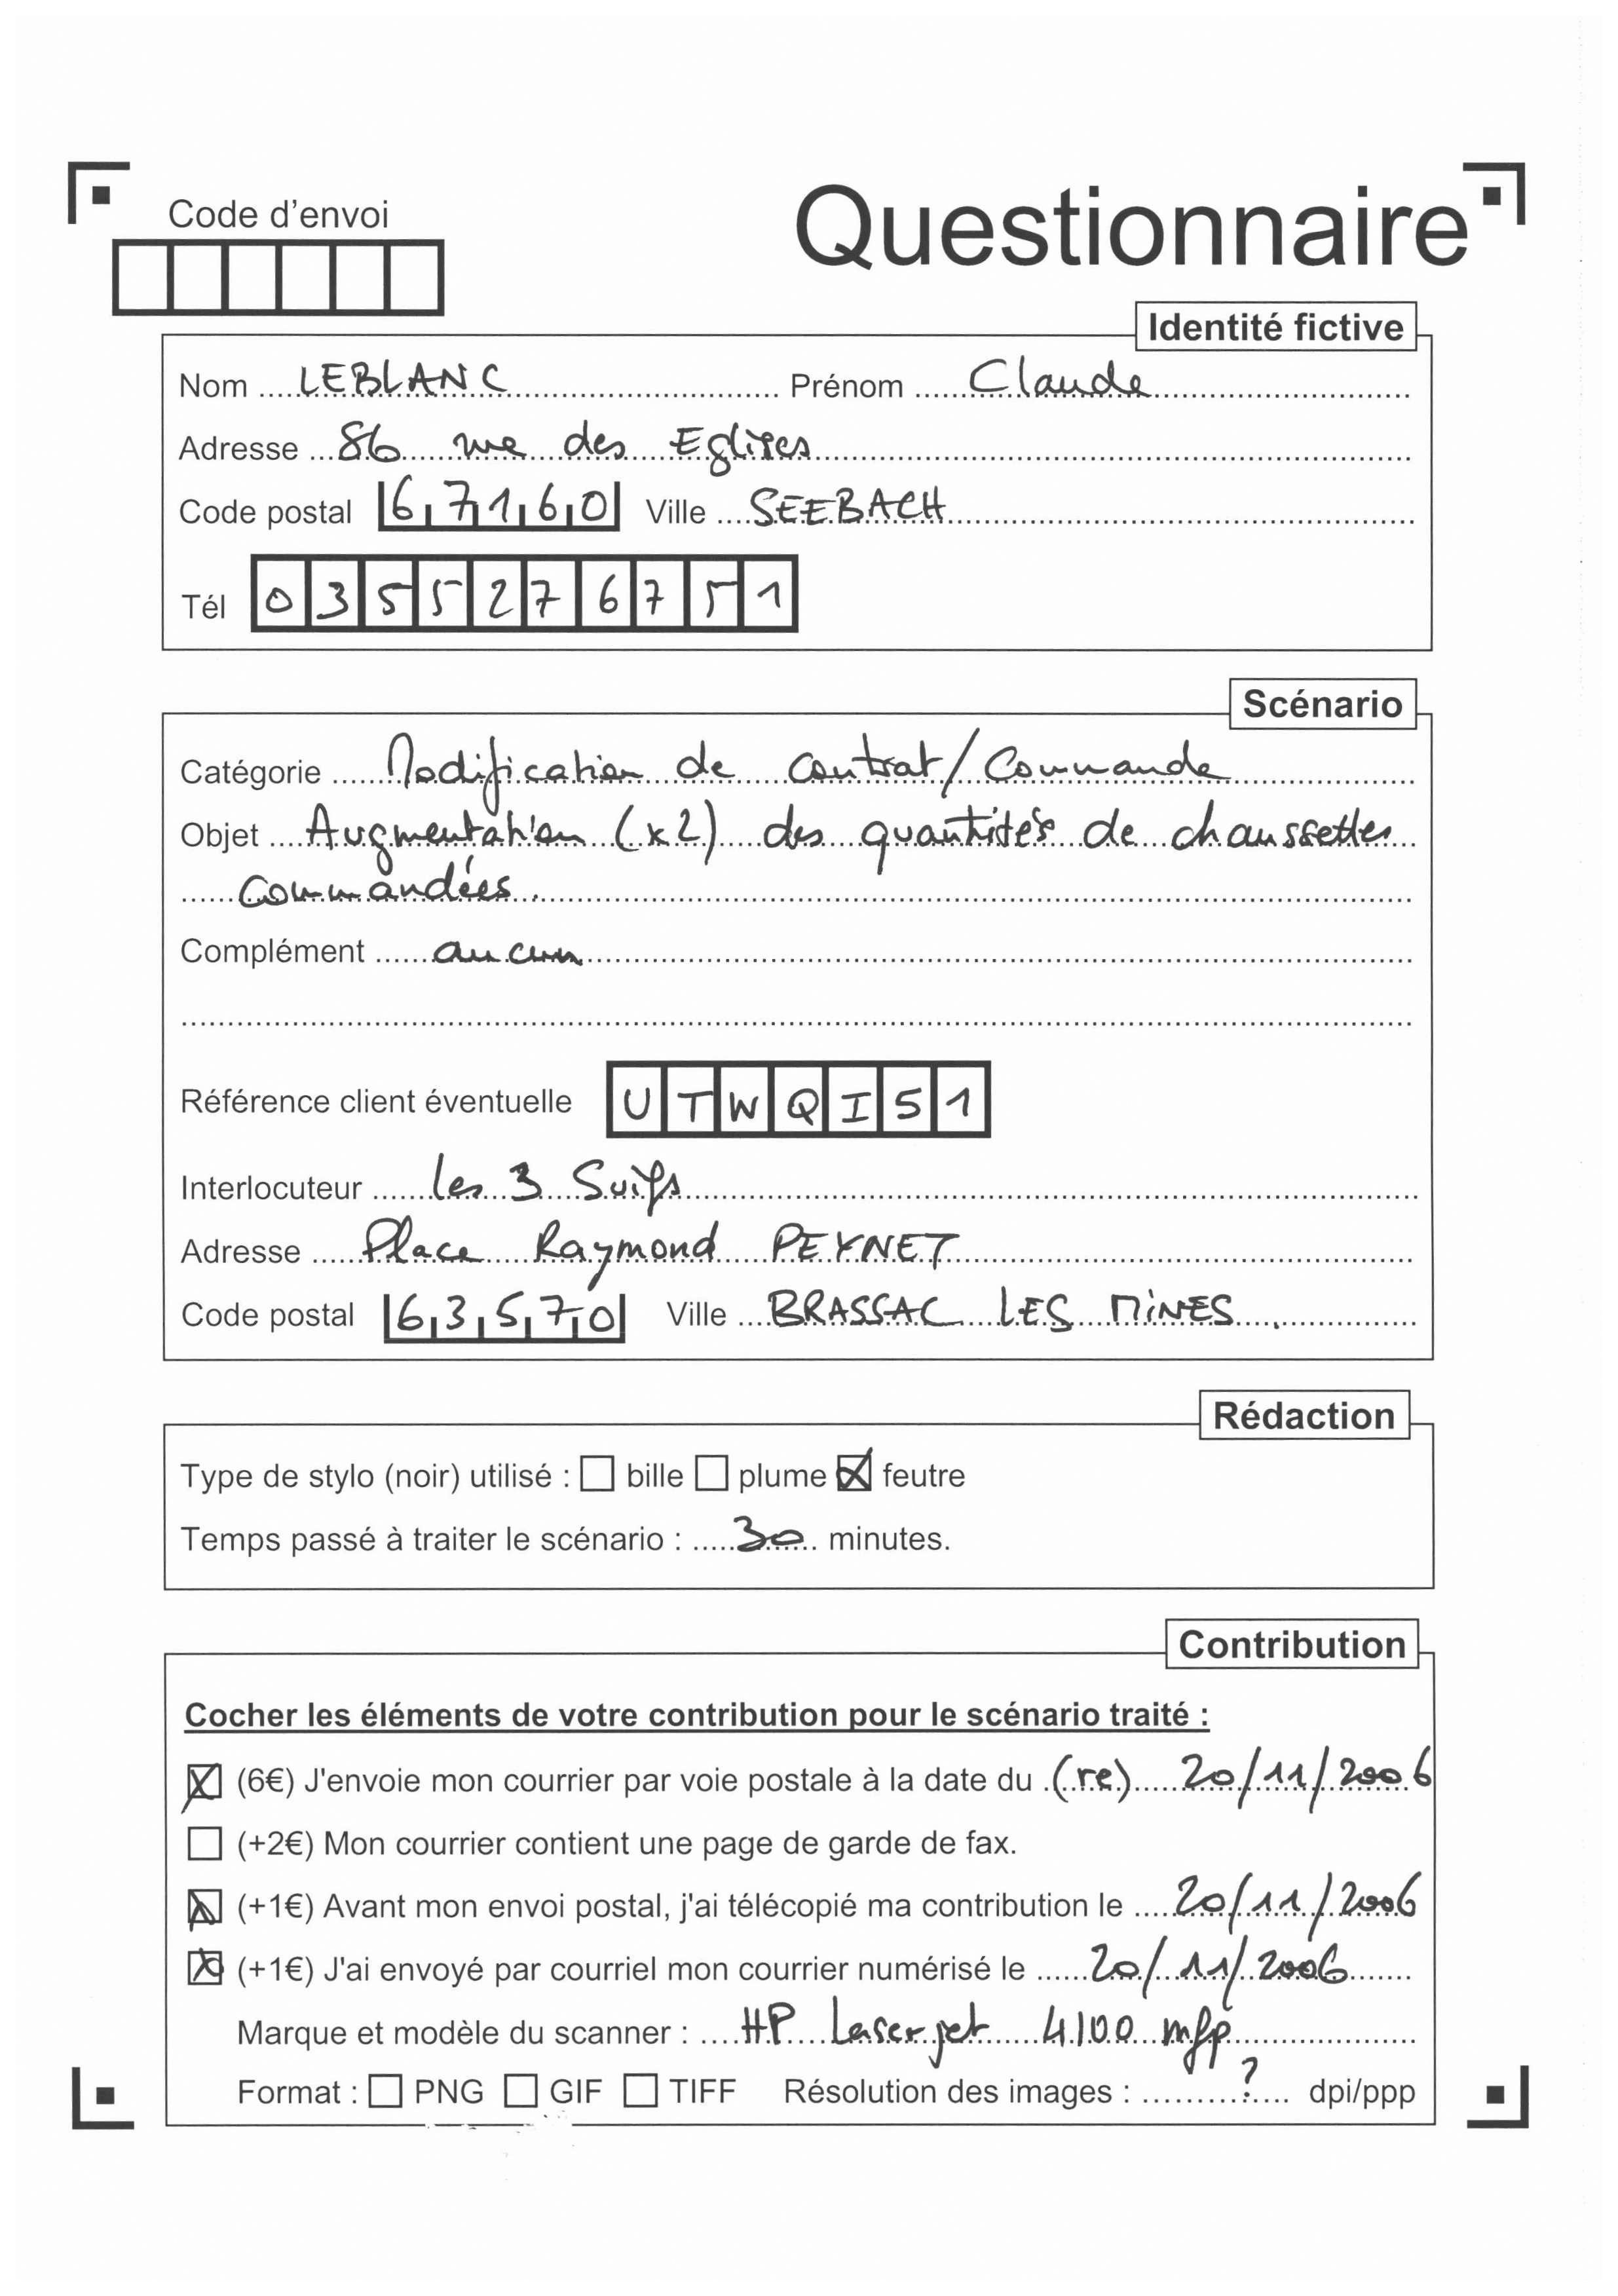 Code d'envoi
Questionnaire
Identité fictive
Nom LEBLANC Prénom Claude
Adresse 86 rue des Eglises
Code postal 67160 Ville SEEBACH
Tél 0355276751
Scénario
Catégorie Modification de contrat/Commande
Objet Augmentation (x2) des quantités de chaussettes
commandées.
Complément aucun
Référence client éventuelle UTWQI51
Interlocuteur Les 3 Suifs
Adresse Place Raymond PEYNET
Code postal 63570 Ville BRASSAC LES MINES.
Rédaction
Type de stylo (noir) utilisé : bille plume feutre
Temps passé à traiter le scénario : 30 minutes.
Contribution
Cocher les éléments de votre contribution pour le scénario traité :
(6€) J'envoie mon courrier par voie postale à la date du (re) 20/11/2006
(+2€) Mon courrier contient une page de garde de fax.
(+1€) Avant mon envoi postal, j'ai télécopié ma contribution le 20/11/2006
(+1€) J'ai envoyé par courriel mon courrier numérisé le 20/11/2006
Marque et modèle du scanner : HP Laserjet 4100 mfp
Format : PNG GIF TIFF Résolution des images : ? dpi/ppp